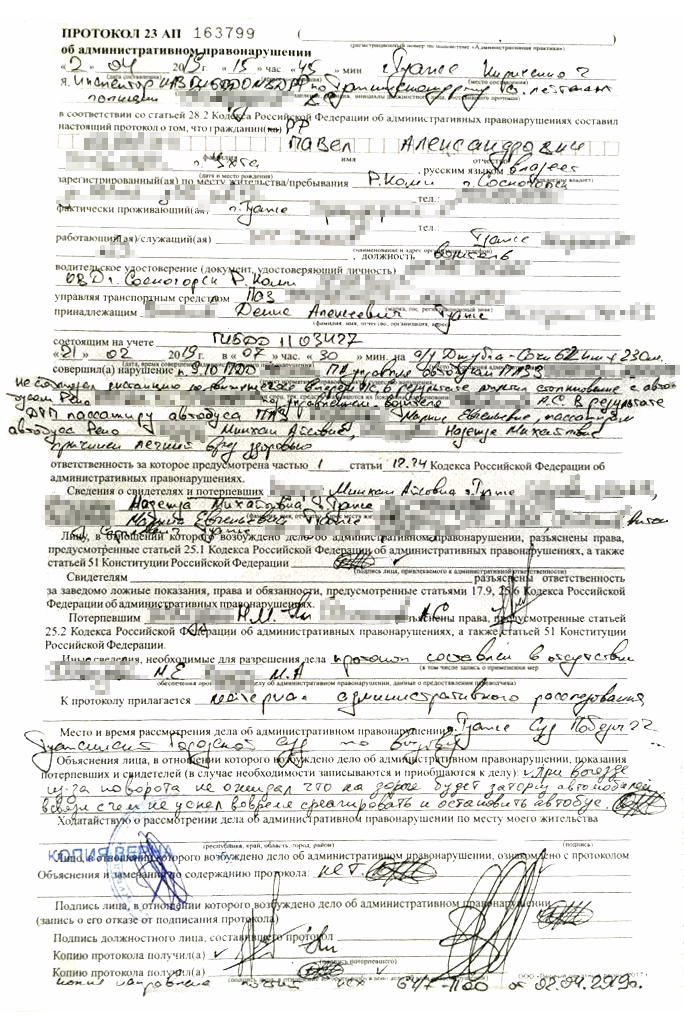 ПРОТОКОЛ 23 АП 163799 (
(регистрационный номер по подсистеме «Административная практика»)
об административном правонарушении
« 2 » 04 2019 г « 15 » час « 45 » мин г. Туапсе Кириченко 2
(дата составления) (место составления)
Я, инспектор ИАЗ ОГИБДД ОМВД РФ по Туапсинскому лейтенант
полиции
в соответствии со статьей 28.2 Кодекса Российской Федерации об административных правонарушениях составил
настоящий протокол о том, что гражданин(ка) РФ
ПАВЕЛ АЛЕКСАНДРОВИЧ
фамилия имя отчество
г. Ухта , русским языком владеет
(дата и место рождения)
зарегистрированный(ая) по месту жительства/пребывания Р.Коми г.Сосногорск
тел.:
фактически проживающий(ая) г. Туапсе
тел.:
работающий(ая)/служащий(ая) Туапсе
, должность водитель
водительское удостоверение (документ, удостоверяющий личность)
ОВД г. Сосногорск Р. Коми
управляя транспортным средством ПАЗ
принадлежащим Денис Алексеевич Туапсе
(фамилия, имя, отчество, организация, адрес)
состоящим на учете ГИБДД 1103427
« 21 » 02 2019 г. в « 07 » час. « 30 » мин. на а/д Джубга-Сочи 62км + 230м.
совершил(а) нарушение п. 9.10 ПДД управляя автобусом ПАЗ
не соблюдал дистанцию до движущегося впереди т.с. В результате допустил столкновение с авто-
бусом Рено под управлением водителя А.С. В результате
ДТП пассажиру автобуса ПАЗ Марине Евгеньевне, пассажирам
автобуса Рено Надежда Михайловне
причинен легкий вред здоровью
ответственность за которое предусмотрена частью 1 статьи 12.24 Кодекса Российской Федерации об
административных правонарушениях.
Сведения о свидетелях и потерпевших г. Туапсе
Надежда Михайловна г. Туапсе
Марина Евгеньевна Туапсе
Лицу, в отношении которого возбуждено дело об административном правонарушении, разъяснены права,
предусмотренные статьей 25.1 Кодекса Российской Федерации об административных правонарушениях, а также
статьей 51 Конституции Российской Федерации
(подпись лица, привлекаемого к административной ответственности)
Свидетелям разъяснены ответственность
за заведомо ложные показания, права и обязанности, предусмотренные статьями 17.9, 25.6 Кодекса Российской
Федерации об административных правонарушениях.
Потерпевшим Н.М. А.С. разъяснены права, предусмотренные статьей
25.2 Кодекса Российской Федерации об административных правонарушениях, а также статьей 51 Конституции
Российской Федерации.
Иные сведения, необходимые для разрешения дела протокол составлен в отсутствии
(в том числе запись о применении мер
М.Е. М.А
К протоколу прилагается материал административного расследования
Место и время рассмотрения дела об административном правонарушении г. Туапсе суд Победы 22
Туапсинский Городской Суд по вызову
Объяснения лица, в отношении которого возбуждено дело об административном правонарушении, показания
потерпевших и свидетелей (в случае необходимости записываются и приобщаются к делу): при выезде
из-за поворота не ожидал что на дороге будет затор автомобилей
в связи с чем не успел вовремя среагировать и остановить автобус.
Ходатайствую о рассмотрении дела об административном правонарушении по месту моего жительства
(республика, край, область, город, район) (подпись)
КОПИЯ ВЕРНА
Лицо, в отношении которого возбуждено дело об административном правонарушении, ознакомлено с протоколом
Объяснения и замечания по содержанию протокола нет.
Подпись лица, в отношении которого возбуждено дело об административном правонарушении
(запись о его отказе от подписания протокола)
Подпись должностного лица, составившего протокол
Копию протокола получил(а)
(подпись потерпевшего)
Копию протокола получил(а)
копия направлена почтой исх 64/7-1700 от 02.04.2019г.